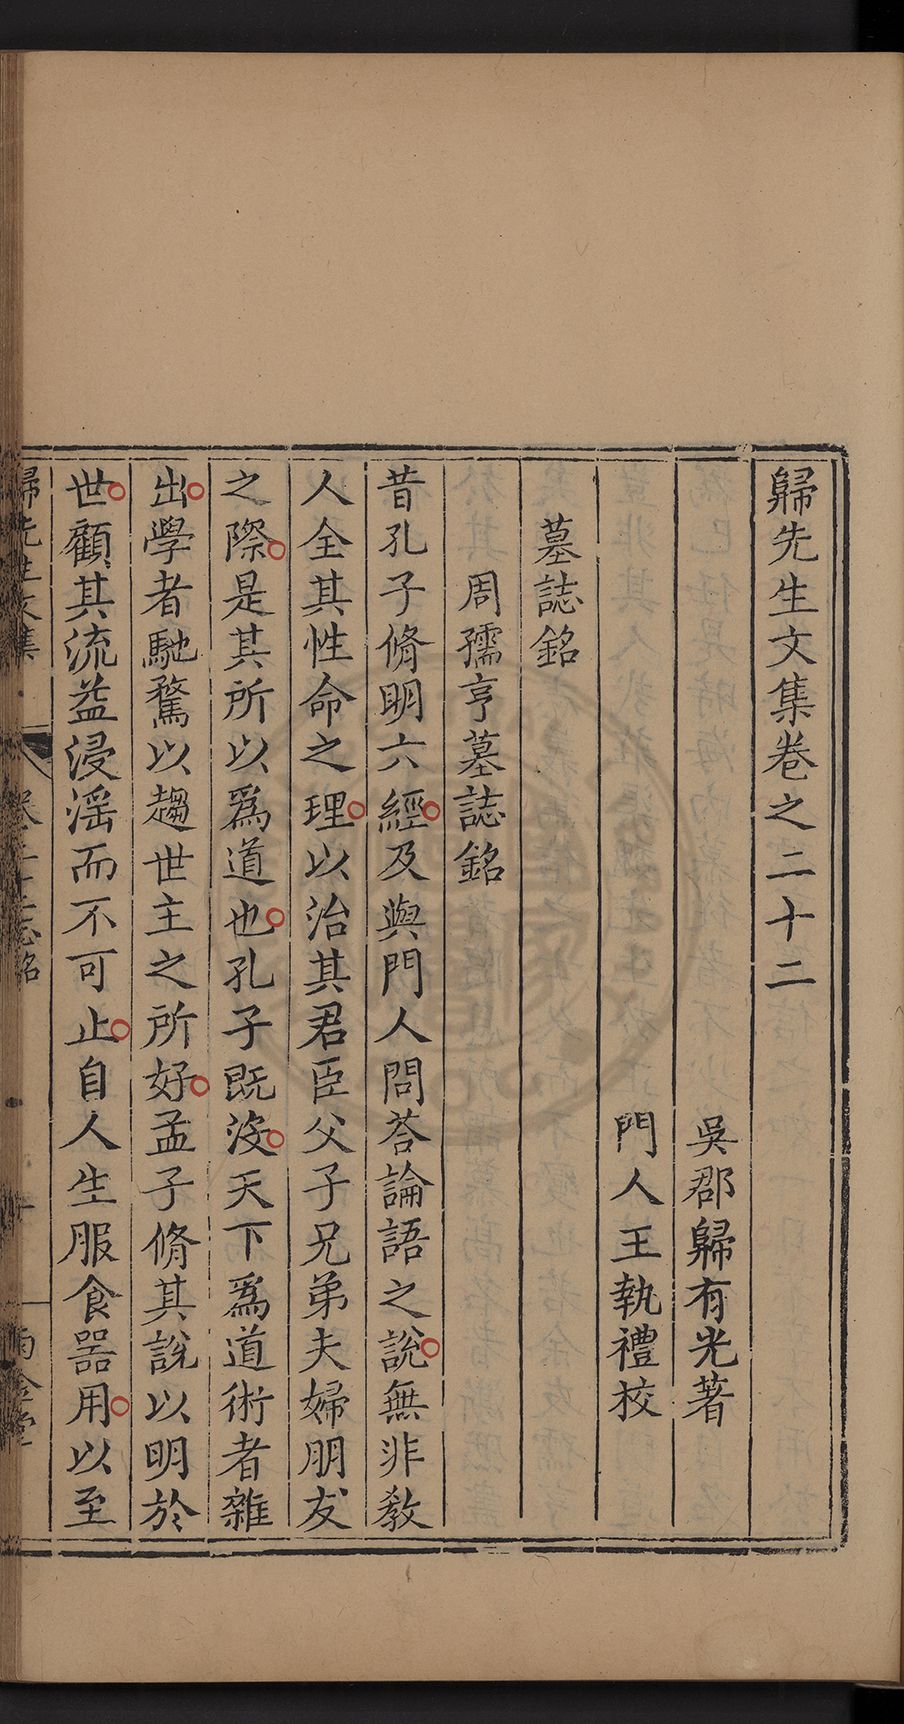 歸先生文集卷之二十二
吳郡歸有光著
門人王執禮校
墓誌銘
周孺亨墓誌銘
昔孔子脩明六經及與門人問荅論語之說無非敎
人全其性命之理以治其君臣父子兄弟夫婦朋友
之際是其所以爲道也孔子既没天下爲道術者雜
出學者馳騖以趨世主之所好孟子脩其說以明於
世顧其流益浸滛而不可止自人生服食噐用以至
歸先生文集